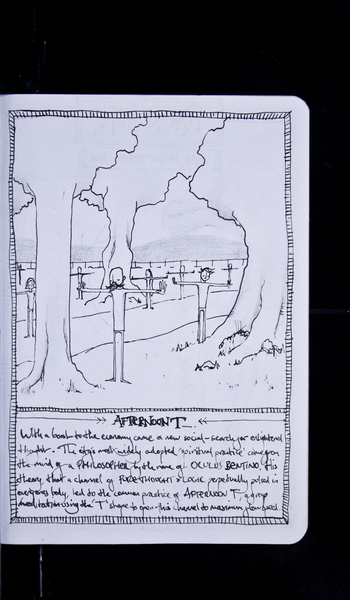 AFTERNOON T
With a boost to the economy came a new social-search for enlightened
thought. The city's most widely adopted 'spiritual practice' came from
the mind of a PHILOSOPHER by the name of OCULUS BENTINO. His
theory, that a channel of PURE THOUGHT & LOGIC perpetually pulsed in
everyones body, led to the common practice of AFTERNOON T, a group
meditation using the 'T' shape to open this channel to maximum flow